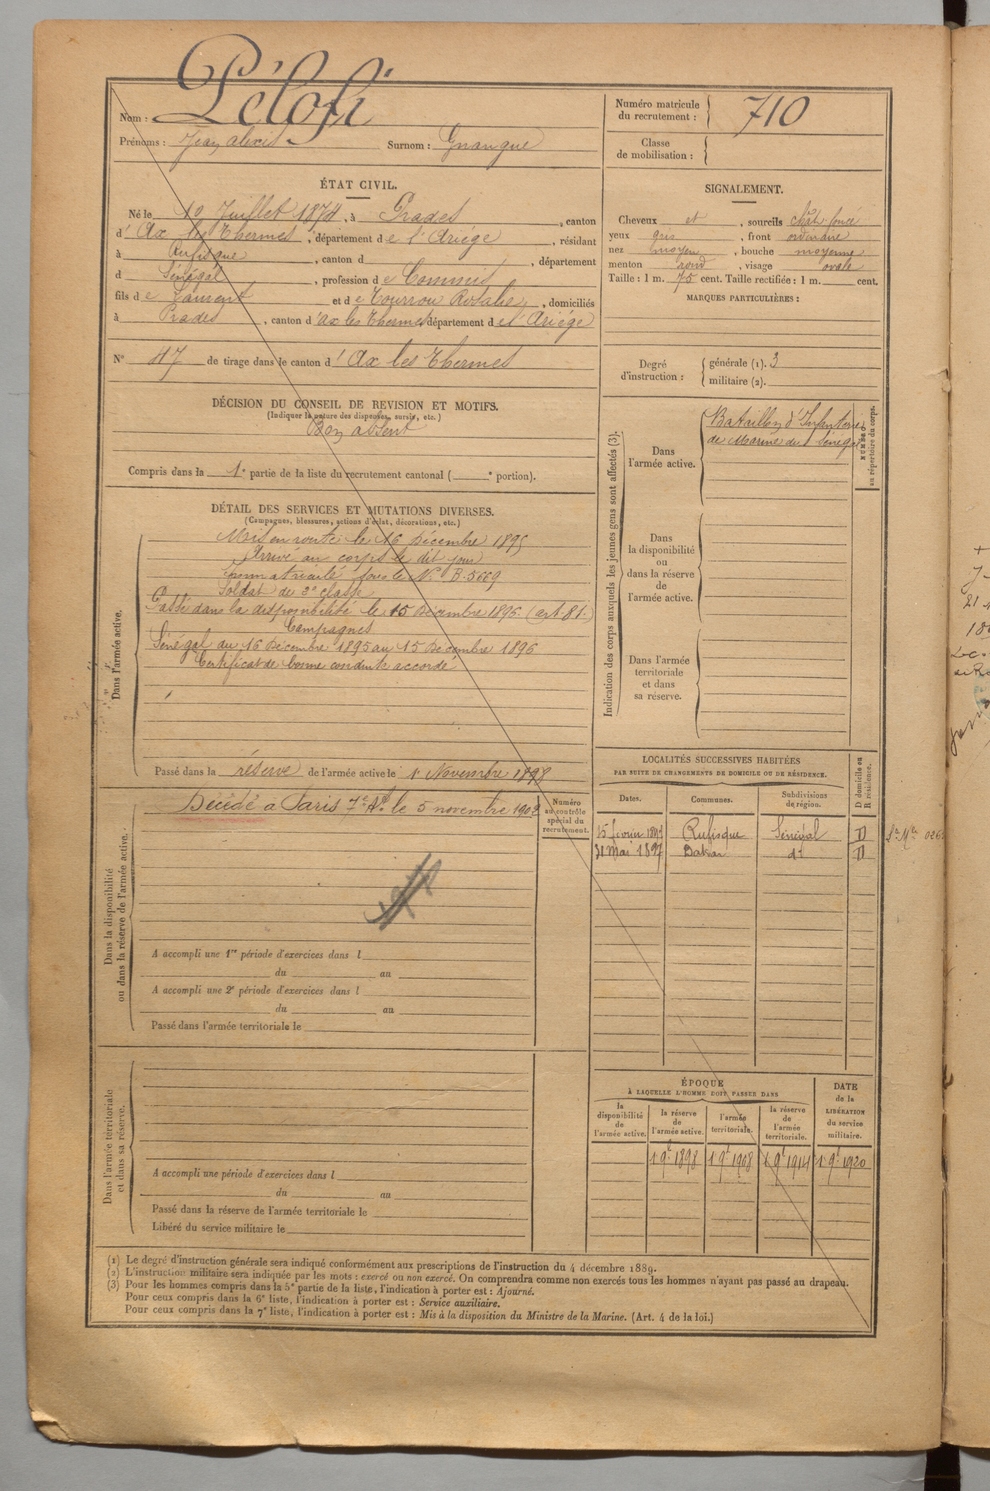 Nom : Pélofi
Prénoms : Jean Alexis Surnom :
ÉTAT CIVIL.
Né le 10 Juillet 1874, à Prades, canton
d' Ax les Thermes, département de l'Ariège, résidant
à Rufisque, canton d , département
d Sénégal, profession de Commis
fils de Laurent et de Tourrou Rosalie, domiciliés
à Prades, canton d'ax les Thermes, département de l'Ariège
N° 47 de tirage dans le canton d'Ax les Thermes
DÉCISION DU CONSEIL DE REVISION ET MOTIFS.
(Indiquer la nature des dispenses, sursis, etc.)
Bon absent
Compris dans la 1e partie de la liste du recrutement cantonal ( e portion).
DÉTAIL DES SERVICES ET MUTATIONS DIVERSES.
(Campagnes, blessures, actions d'éclat, décorations, etc.)
Dans l'armée active.
Mis en route le 16 Décembre 1895
Arrivé au corps le dit jour
immatriculé sous le N° B. 5669
Soldat de 2e classe
Passé dans la disponibilité le 15 Décembre 1896. (art 81.)
Campagnes
Sénégal du 16 Décembre 1895 au 15 Décembre 1896
Certificat de bonne conduite accordé
Passé dans la réserve de l'armée active le 1 Novembre 1898
Dans la disponibilité
ou dans la réserve de l'armée active.
Décédé à Paris 7e Ar. le 5 novembre
Numéro
au contrôle
spécial du
recrutement.
A accompli une 1re période d'exercices dans l
du au
A accompli une 2e période d'exercices dans l
du au
Passé dans l'armée territoriale le
Dans l'armée territoriale
et dans sa réserve.
A accompli une période d'exercices dans l
du au
Passé dans la réserve de l'armée territoriale le
Libéré du service militaire le
Numéro matricule
du recrutement : 710
Classe
de mobilisation :
SIGNALEMENT.
Cheveux et, sourcils chât foncé
yeux gris, front ordinaire
nez moyen, bouche moyenne
menton rond, visage ovale
Taille : 1 m. 75 cent. Taille rectifiée : 1 m. cent.
MARQUES PARTICULIÈRES :
Degré
d'instruction :
générale (1). 3
militaire (2).
Indication des corps auxquels les jeunes gens sont affectés (3).
Dans
l'armée active.
Bataillon d'Infanterie
de Marine du Sénégal
NUMÉRO
au répertoire du corps.
Dans
la disponibilité
ou
dans la réserve
de
l'armée active.
Dans l'armée
territoriale
et dans
sa réserve.
LOCALITÉS SUCCESSIVES HABITÉES
PAR SUITE DE CHANGEMENTS DE DOMICILE OU DE RÉSIDENCE.
Dates. Communes. Subdivisions de région. D domicile ou R résidence.
15 février 1897 Rufisque Sénégal D
31 Mai 1897 Dakar dt D
ÉPOQUE
À LAQUELLE L'HOMME DOIT PASSER DANS
la disponibilité de l'armée active.
la réserve de l'armée active.
l'armée territoriale.
la réserve de l'armée territoriale.
DATE
de la
LIBÉRATION
du service
militaire.
1 9e 1898 1 9e 1908 1 9e 1914 1 9e 1920
(1) Le degré d'instruction générale sera indiqué conformément aux prescriptions de l'instruction du 4 décembre 1889.
(2) L'instruction militaire sera indiquée par les mots : exercé ou non exercé. On comprendra comme non exercés tous les hommes n'ayant pas passé au drapeau.
(3) Pour les hommes compris dans la 5e partie de la liste, l'indication à porter est : Ajourné.
Pour ceux compris dans la 6e liste, l'indication à porter est : Service auxiliaire.
Pour ceux compris dans la 7e liste, l'indication à porter est : Mis à la disposition du Ministre de la Marine. (Art. 4 de la loi.)